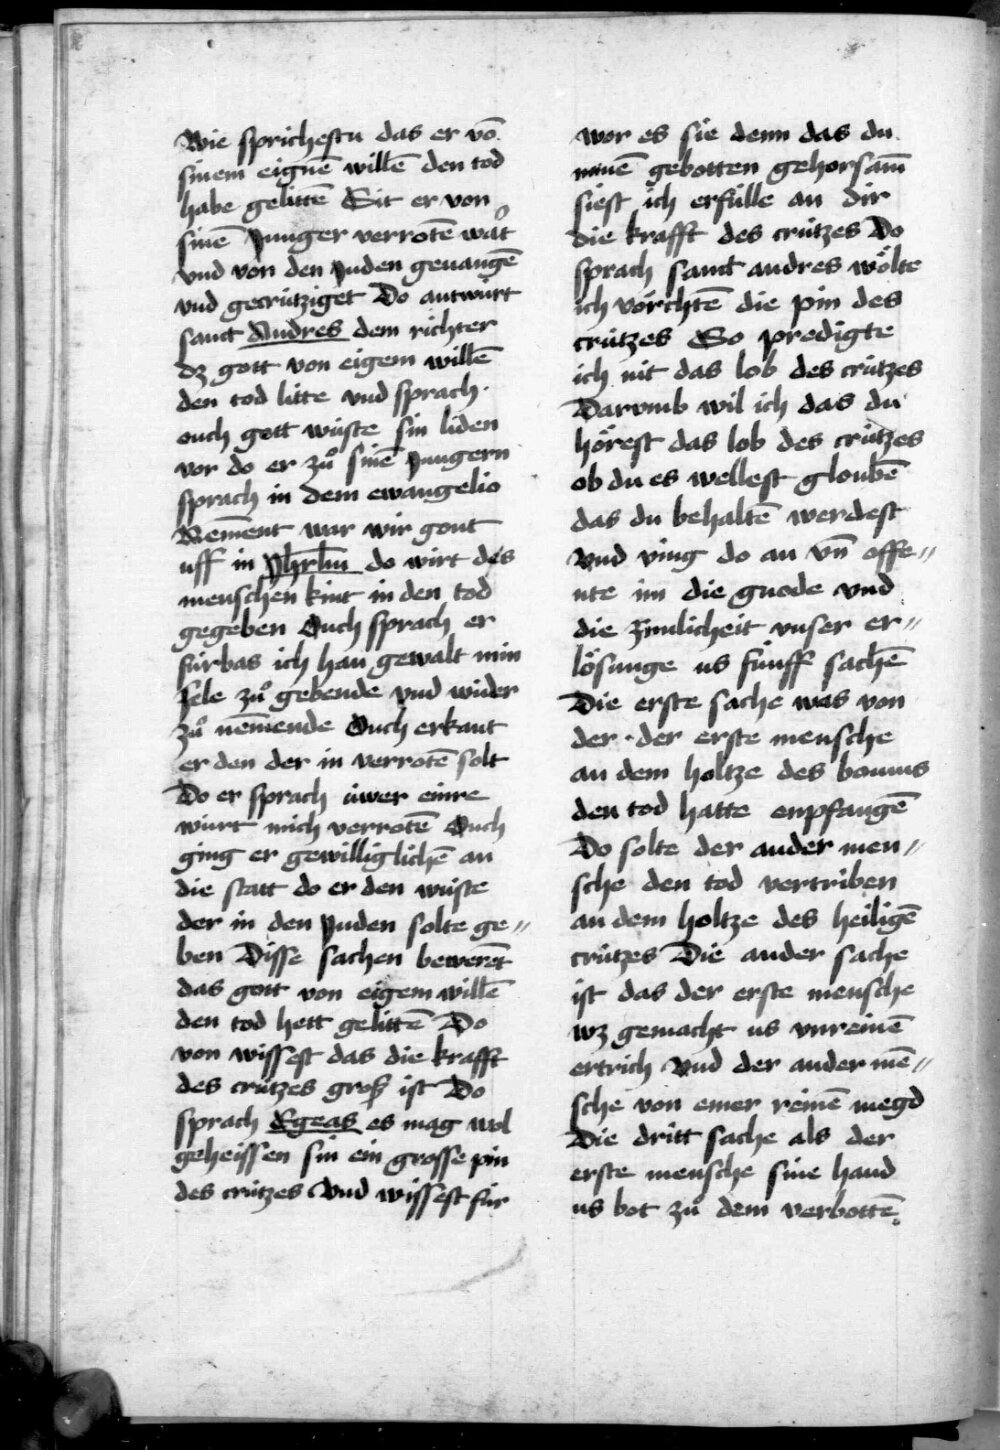 Wie sprichestu das er võ
sinem eignē willē den tod
habe gelittē Sit er von
sinē Junger verrotē wart
vnd von den Juden geuangē
vnd gecrútziget Do antwúrt
sanct Andres dem richter
dz gott von eigem willē
den tod litte vnd sprach
ouch gott wúste sin liden
vor do er zů sinē Jungern
sprach in dem ewangelio
Nemēt war wir gont
uff in Jhrlm do wirt des
menschen kint in den tod
gegeben Ouch sprach er
fúrbas ich han gewalt min
sele zů gebende vnd wider
zů nemēnde Ouch erkant
er den der in verrotē solt
Do er sprach úwer einre
wúrt mich verrotē Ouch
ging er gewilliglichē an
die statt do er den wúste
der in den Juden solte ge〃
ben Disse sachen bewerēt
das gott von eigem willē
den tod hett gelittē Do
von wissest das die krafft
des crútzes groß ist Do
sprach Egeas es mag wol
geheissen sin ein grosse pin
des crútzes Vnd wissest fúr
wor es sie denn das du
minē gebotten gehorsam̄
siest ich erfúlle an dir
die krafft des crútzes Do
sprach sanct andres wölte
ich vörchtē die pin des
crútzes So predigte
ich nit das lob des crútzes
Darvmb wil ich das du
hörest das lob des crútzes
ob du es wellest gloubē
das du behaltē werdest
Vnd ving do an vn̄ offe〃
nte im die gnode vnd
die zimlicheit vnser er〃
lösunge us fúnff sachē
Die erste sache was von
der der erste mensche
an dem holtze des boums
den tod hatte enpfangē
Do solte der ander men〃
sche den tod vertriben
an dem holtze des heiligē
crútzes Die ander sache
ist das der erste mensche
wz gemacht us vnreinē
ertrich Vnd der ander mē〃
sche von einer reinē megd
Die dritt sache als der
erste mensche sine hand
us bot zů dem verbottē